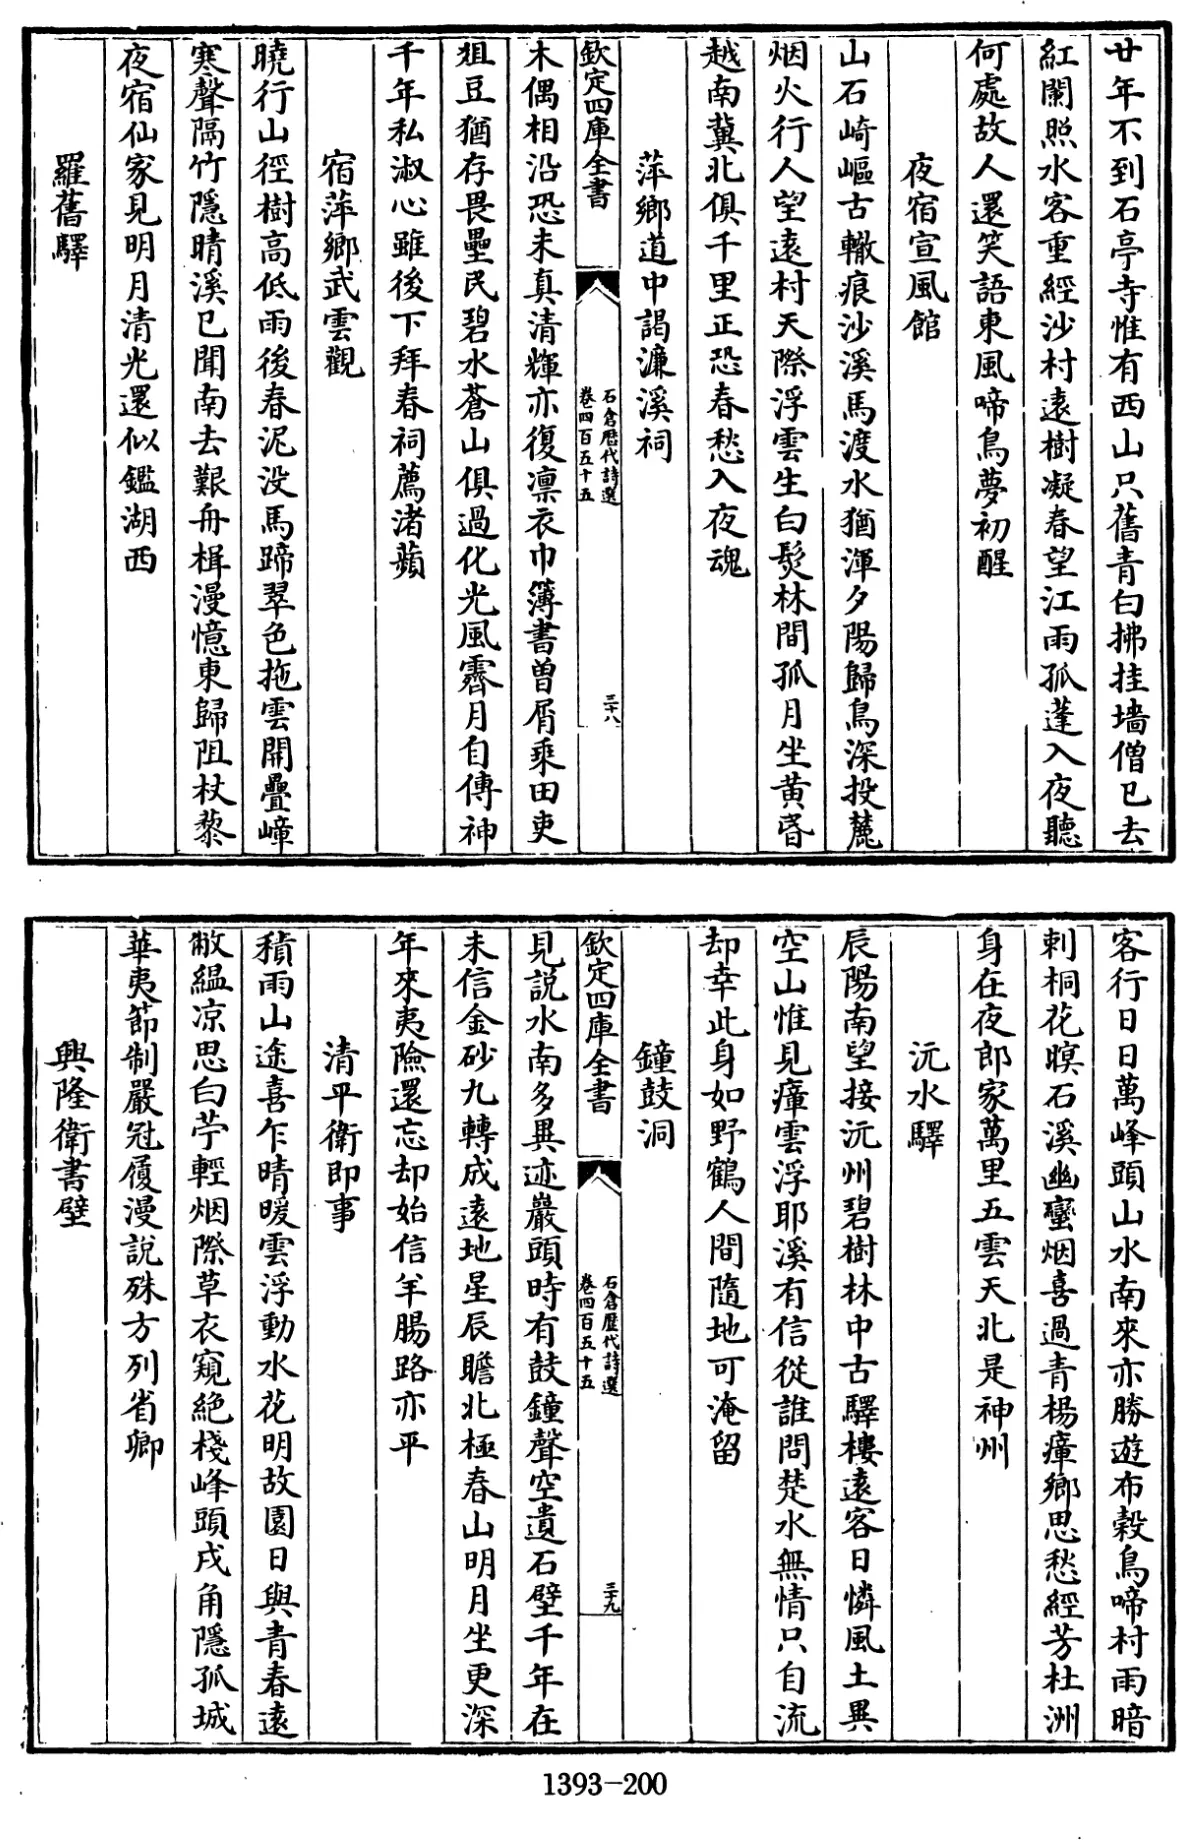 廿年不到石亭寺惟有西山只舊青白拂挂墻僧已去
紅闌照水客重經沙村遠樹凝春望江雨孤蓬入夜聽
何處故人還笑語東風啼鳥夢初醒
夜宿宣風館
山石崎嶇古轍痕沙溪馬渡水猶渾夕陽歸鳥深投麓
烟火行人望遠村天際浮雲生白髮林間孤月坐黃昏
越南冀北俱千里正恐春愁入夜魂
萍鄉道中謁濂溪祠
欽定四庫全書
石倉歷代詩選
卷四百五十五
三十八
木偶相沿恐未真清輝亦復凛衣巾簿書曾屑乘田吏
俎豆猶存畏壘民碧水蒼山俱過化光風霽月自傳神
千年私淑心雖後下拜春祠薦渚蘋
宿萍鄉武雲觀
曉行山徑樹高低雨後春泥没馬蹄翠色拖雲開疊嶂
寒聲隔竹隱晴溪已聞南去艱舟楫漫憶東歸阻杖藜
夜宿仙家見明月清光還似鑑湖西
羅舊驛
客行日日萬峰頭山水南來亦勝遊布穀鳥啼村雨暗
刺桐花暝石溪幽蠻烟喜過青楊瘴鄉思愁經芳杜洲
身在夜郎家萬里五雲天北是神州
沅水驛
辰陽南望接沅州碧樹林中古驛樓遠客日憐風土異
空山惟見瘴雲浮耶溪有信從誰問楚水無情只自流
却幸此身如野鶴人間隨地可淹留
鐘鼓洞
欽定四庫全書
石倉歷代詩選
卷四百五十五
三十九
見說水南多異迹巖頭時有鼓鐘聲空遺石壁千年在
未信金砂九轉成遠地星辰瞻北極春山明月坐更深
年來夷險還忘却始信羊腸路亦平
清平衛即事
積雨山途喜乍晴暖雲浮動水花明故園日與青春遠
敝緼凉思白苧輕烟際草衣窺絶棧峰頭戍角隱孤城
華夷節制嚴冠履漫說殊方列省卿
興隆衛書壁
1393-200